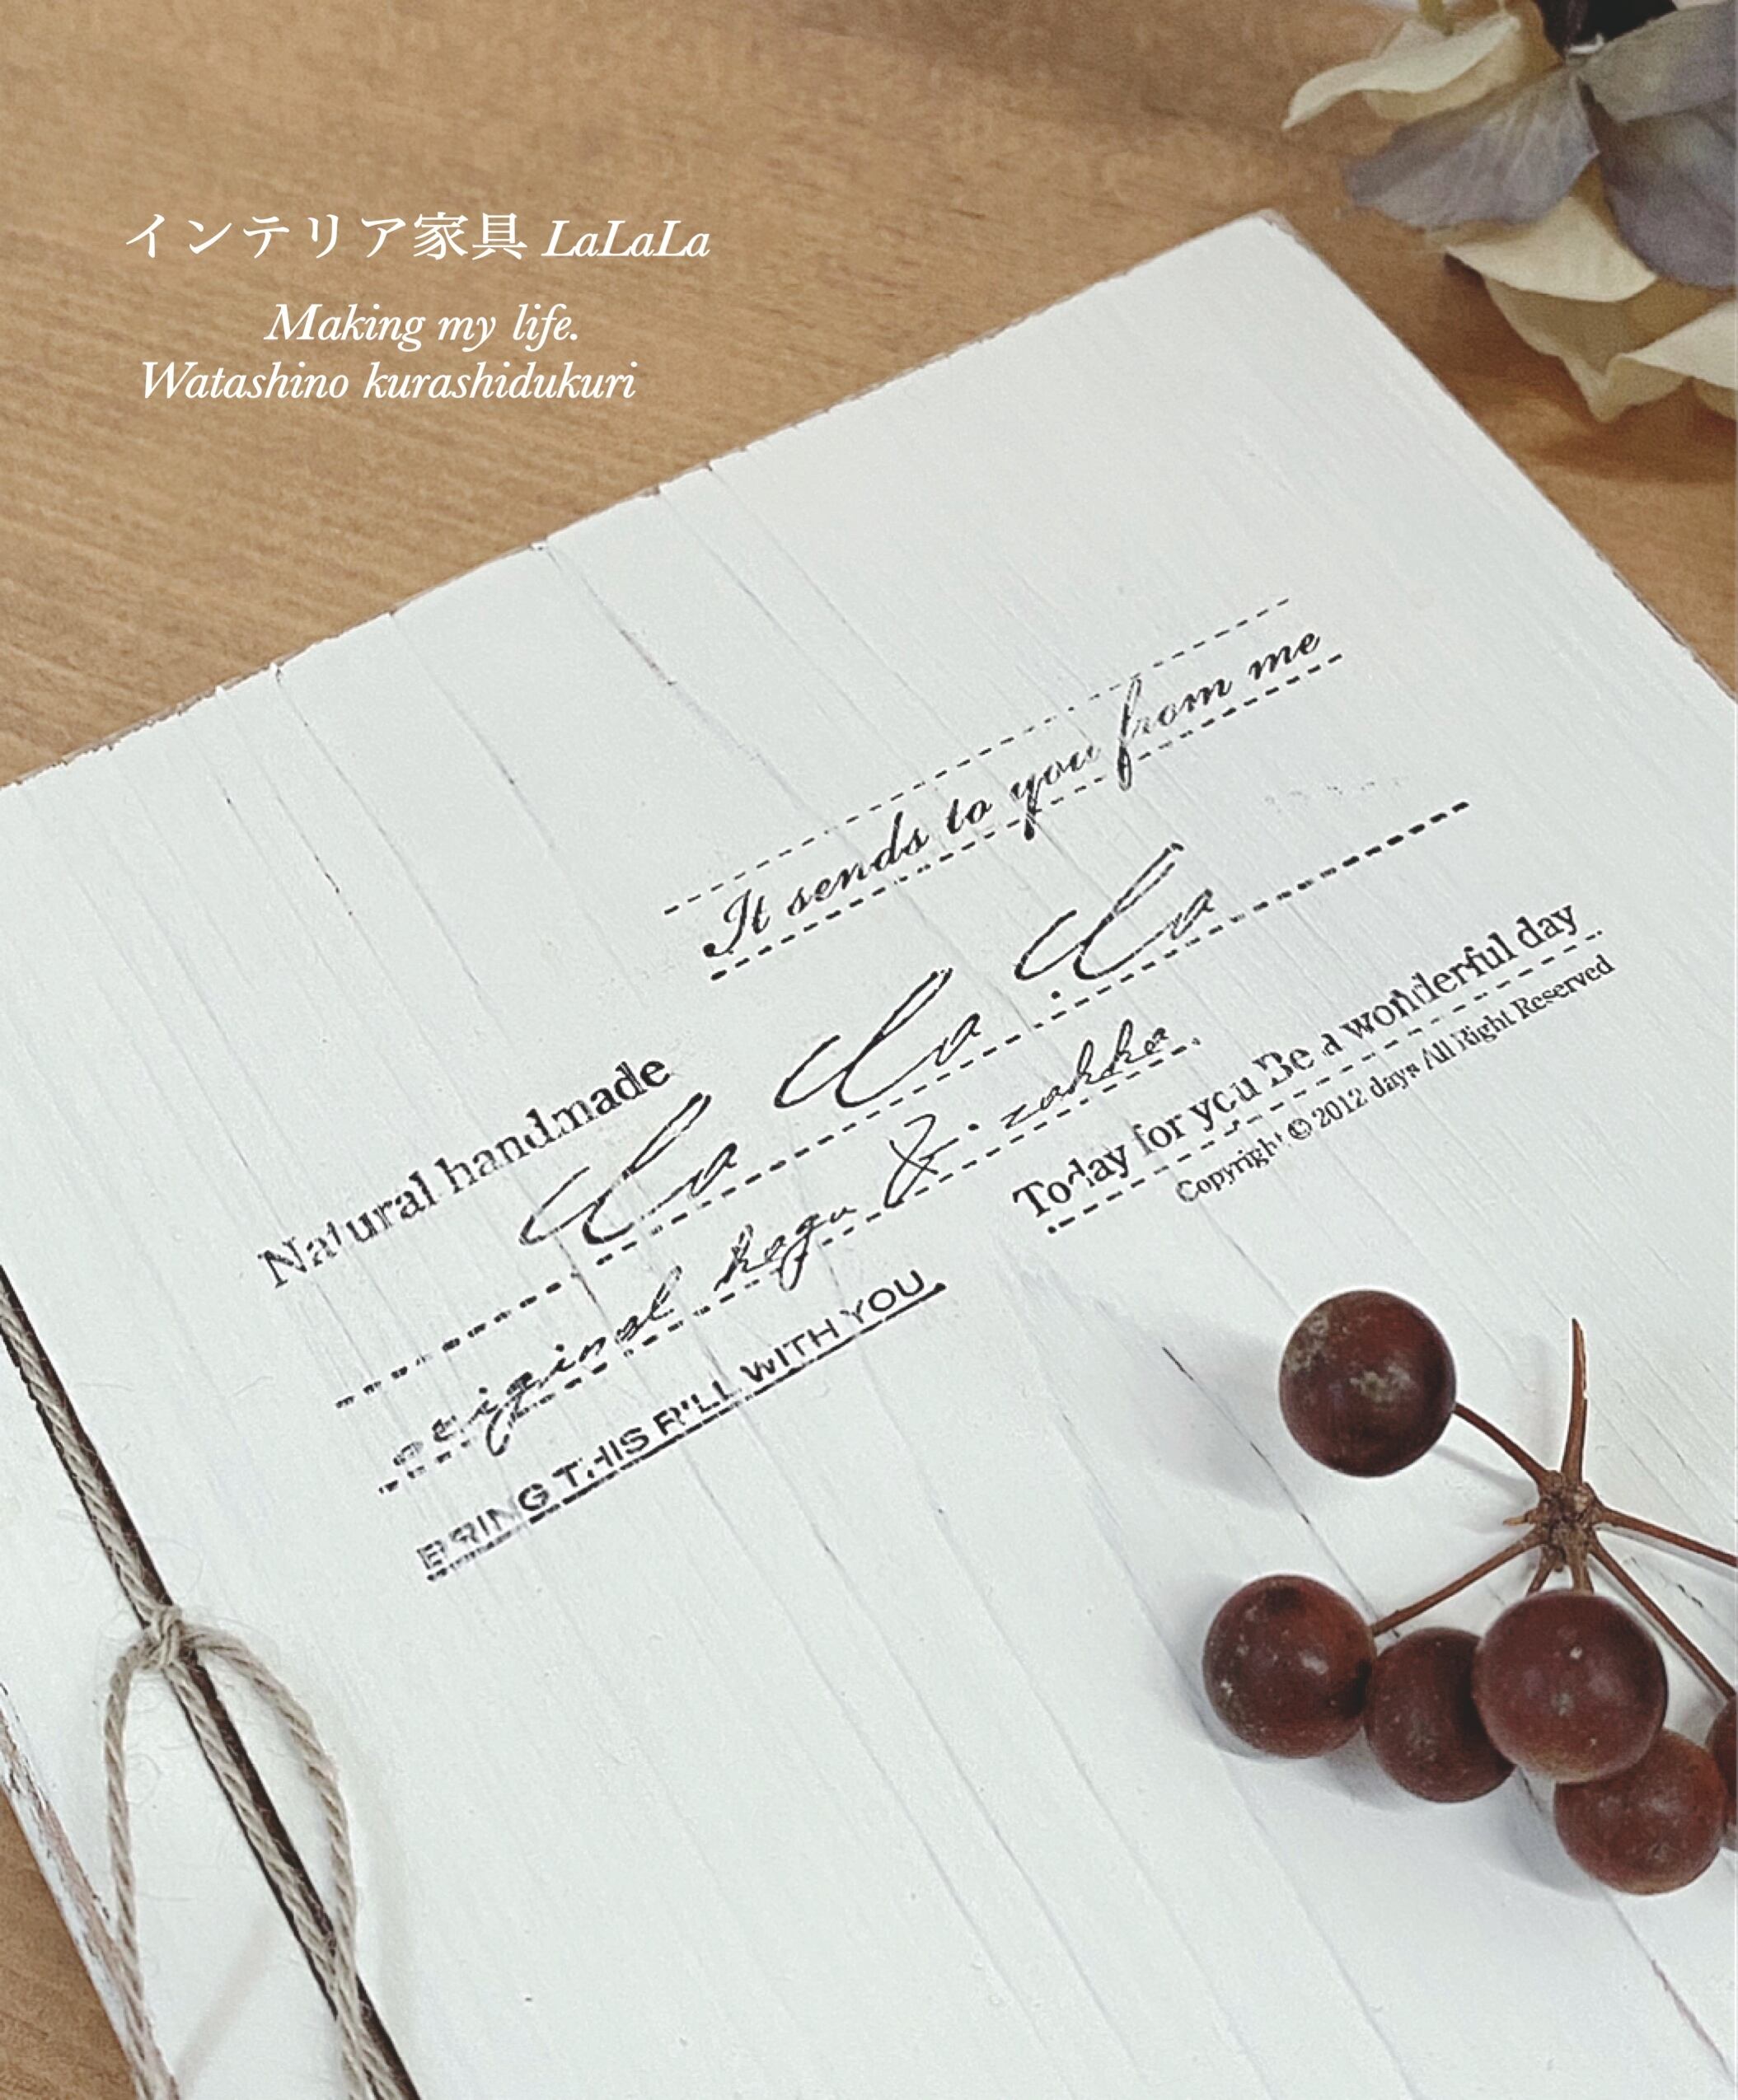 インテリア家具 LaLaLa
Making my life.
Watashino kurashidukuri
It sends to you from me
Natural handmade
La La La
original kagu & zakka.
Today for you Be a wonderful day
Copyright © 2012 days All Right Reserved
BRING THIS BILL WITH YOU